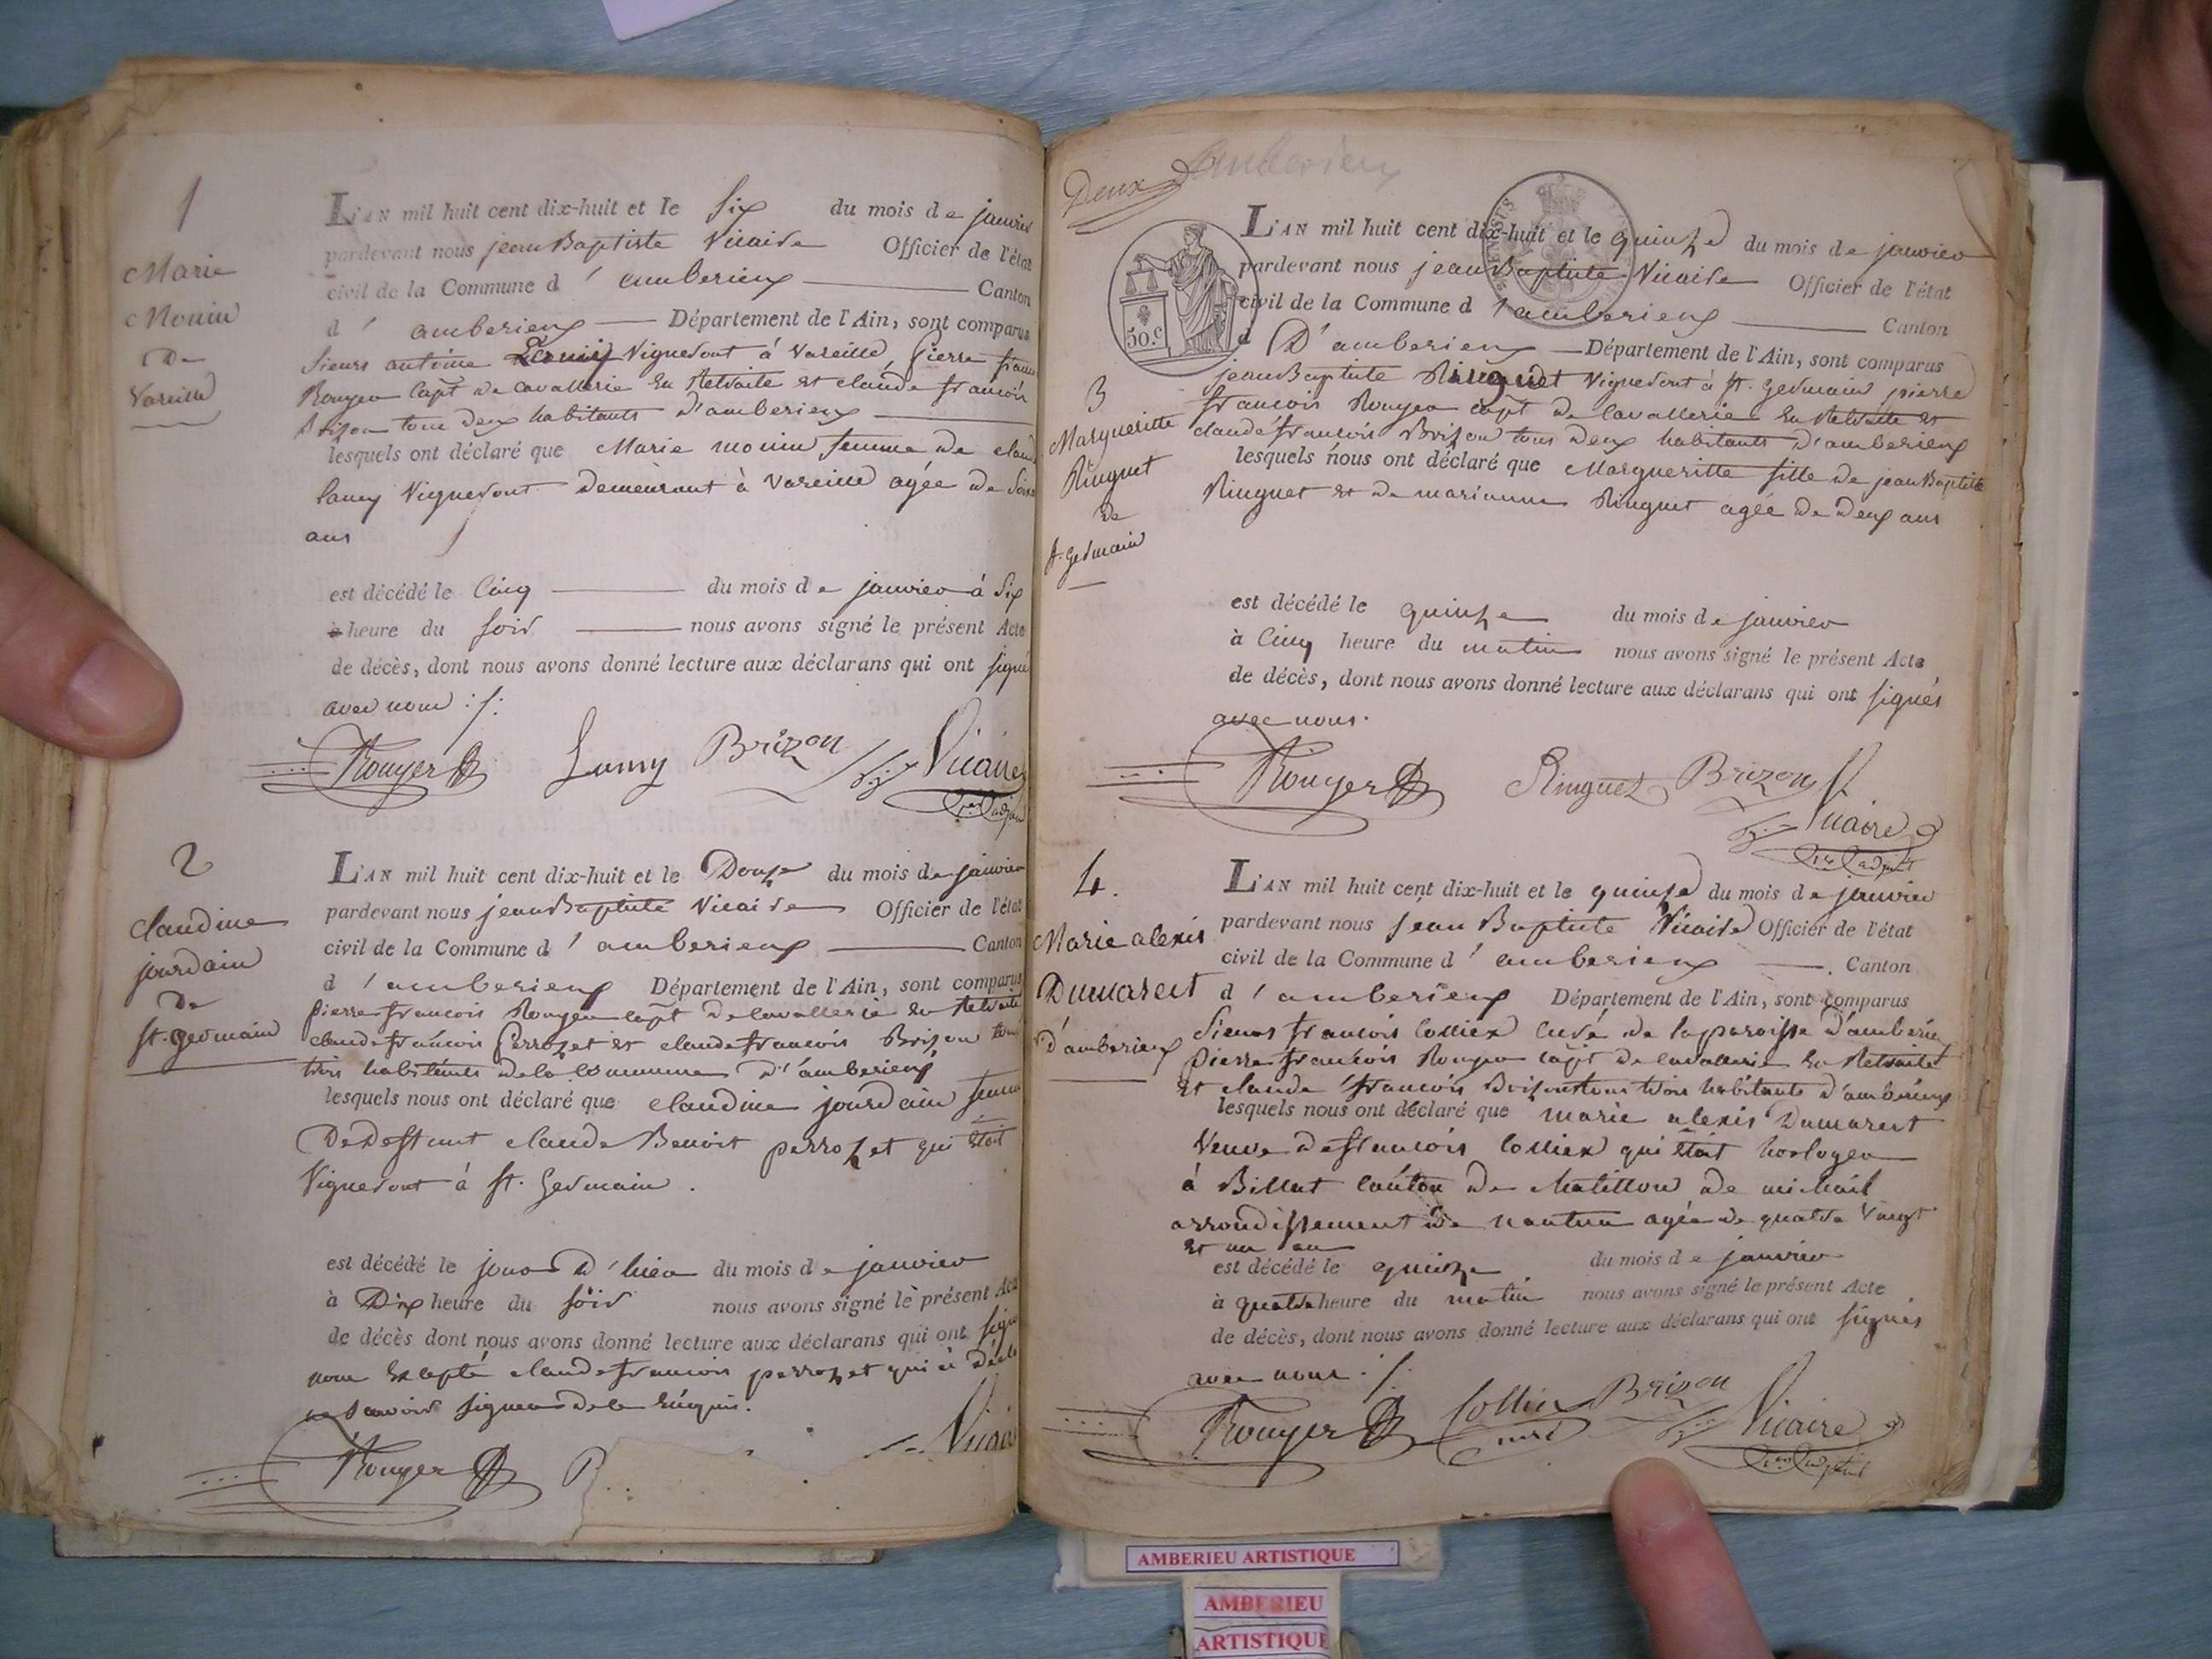 1
Marie
Monin
De
Vareille
L'AN mil huit cent dix-huit et le Six du mois de janvier
pardevant nous jean Baptiste Vicaire Officier de l'état
civil de la Commune d' amberieux Canton
d' amberieux Département de l'Ain, sont comparus
Sieurs antoine Vigneront à Vareille, Pierre
Rouyer capt de cavallerie En Retraite et claude francois
Brizon tous deux habitants d'amberieux
lesquels ont déclaré que Marie monin femme de
Lamy Vigneront Demeurant à Vareille agée de
ans
est décédé le Cinq du mois de janvier à Six
heure du soir nous avons signé le présent Acte
de décès, dont nous avons donné lecture aux déclarans qui ont signé
avec nous
Rouyer Lamy Brizon Vicaire
2
claudine
jourdain
De
St. Germain
L'AN mil huit cent dix-huit et le Douze du mois de janvier
pardevant nous jean Baptiste Vicaire Officier de l'état
civil de la Commune d' amberieux Canton
d' amberieux Département de l'Ain, sont comparus
pierre francois Rouyer capt de cavallerie en Retraite
claude francois Perrozet et claude francois Brizon tous
trois habitants de la Commune d'amberieux
lesquels nous ont déclaré que claudine jourdain femme
De Deffunt claude Benoit perrozet qui était
Vigneront à St. Germain.
est décédé le jour D'hier du mois de janvier
à Dix heure du soir nous avons signé le présent Acte
de décès dont nous avons donné lecture aux déclarans qui ont signé
nous Excepté claude francois perrozet qui à
ne savoir signer de ce Enquis.
Rouyer Vicaire
Deux
Amberieu
50.c
3
Margueritte
Ringuet
de
St. Germain
L'AN mil huit cent dix-huit et le quinze du mois de janvier
pardevant nous jean Baptiste Vicaire Officier de l'état
civil de la Commune d' amberieux Canton
d D'amberieux Département de l'Ain, sont comparus
jean Baptiste Ringuet Vigneront à St. Germain pierre
francois Rouyer capt de Cavallerie En Retraite et
claude francois Brizon tous deux habitants d'amberieux
lesquels nous ont déclaré que Margueritte fille de jean Baptiste
Ringuet et de marianne Ringuet agée de deux ans
est décédé le quinze du mois de janvier
à Cinq heure du matin nous avons signé le présent Acte
de décès, dont nous avons donné lecture aux déclarans qui ont signés
avec nous.
Rouyer Ringuet Brizon
Vicaire
4.
Marie alexis
Dumarest
d'amberieux
L'AN mil huit cent dix-huit et le quinze du mois de janvier
pardevant nous Jean Baptiste Vicaire Officier de l'état
civil de la Commune d' amberieux Canton
d' amberieux Département de l'Ain, sont comparus
Sieurs francois Colliex Curé de la paroisse d'amberieux
Pierre francois Rouyer capt de cavallerie En Retraite
Et claude francois Brizon tous trois habitants d'amberieux
lesquels nous ont déclaré que marie alexis Dumarest
Veuve de francois Colliex qui était horloger
à Billiat Canton de Chatillon de michail
arrondissement de nantua agée de quatre Vingt
Et un an
est décédé le quinze du mois de janvier
à quatre heure du matin nous avons signé le présent Acte
de décès, dont nous avons donné lecture aux déclarans qui ont signés
avec nous
Rouyer Colliex Brizon Vicaire
curé
AMBERIEU ARTISTIQUE
AMBERIEU
ARTISTIQUE